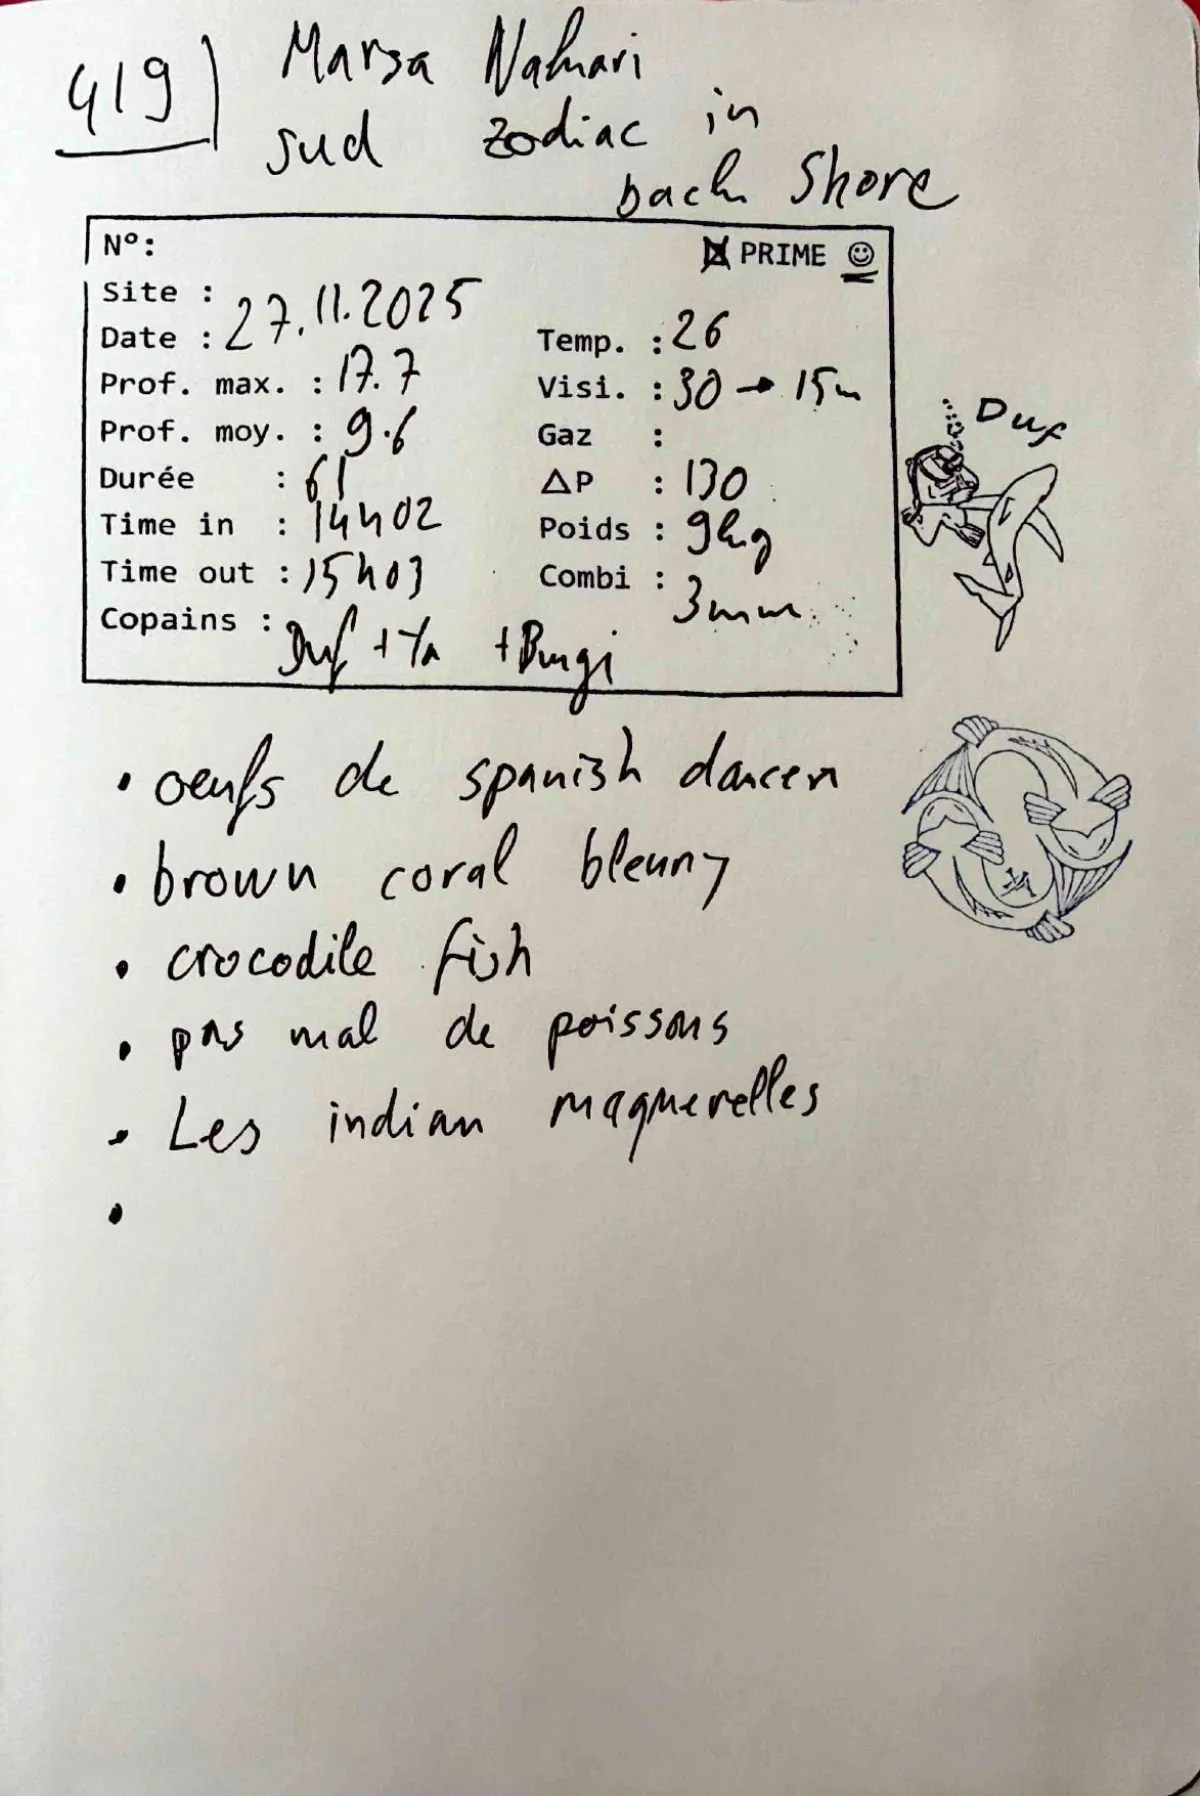 419) Marsa Nahari
sud zodiac in
back Shore
N°: ☒ PRIME ☺
Site :
Date : 27.11.2025 Temp. : 26
Prof. max. : 17.7 Visi. : 30 → 15m
Prof. moy. : 9.6 Gaz :
Durée : 61 ΔP : 130
Time in : 14h02 Poids : 9kg
Time out : 15h03 Combi : 3mm
Copains : Duf + Ya +
Duf
• oeufs de spanish dancer
• brown coral blenny
• crocodile fish
• pas mal de poissons
• Les indian maquerelles
•